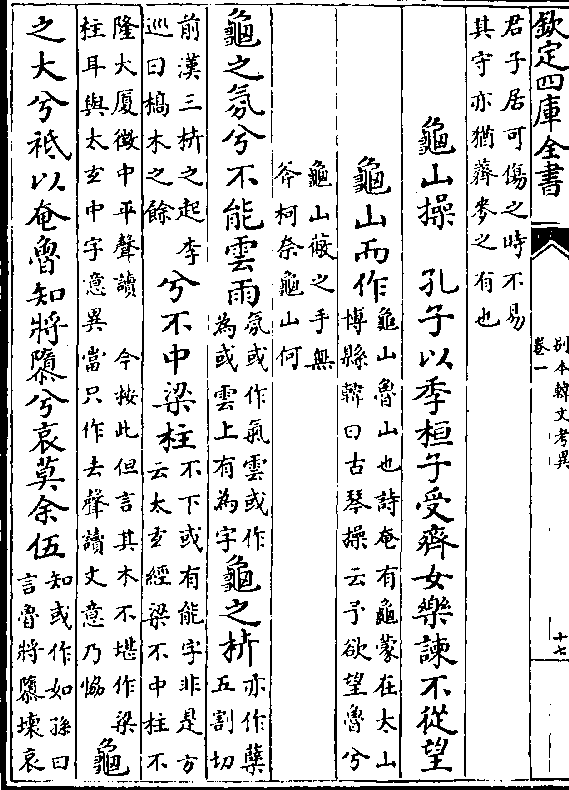 欽定四庫全書
別本韓文考異
卷一
十七
君子居可傷之時不易
其守亦猶薺麥之有也
龜山操　孔子以季桓子受齊女樂諫不從望
龜山而作
龜山魯山也詩奄有龜蒙在太山
博縣韓曰古琴操云予欲望魯兮
龜山蔽之手無
斧柯柰龜山何
龜之氛兮不能雲雨
氛或作氣雲或作
為或雲上有為字
龜之枿
亦作蘖
五割切
前漢三枿之起李
廵曰槁木之餘
兮不中梁柱
不下或有能字非是方
云太玄經梁不中柱不
隆大厦㣲中平聲讀　今按此但言其木不堪作梁
柱耳與太玄中字意異當只作去聲讀文意乃恊
龜
之大兮祗以奄魯知將隳兮哀莫余伍
知或作如孫曰
言魯將隳壞哀